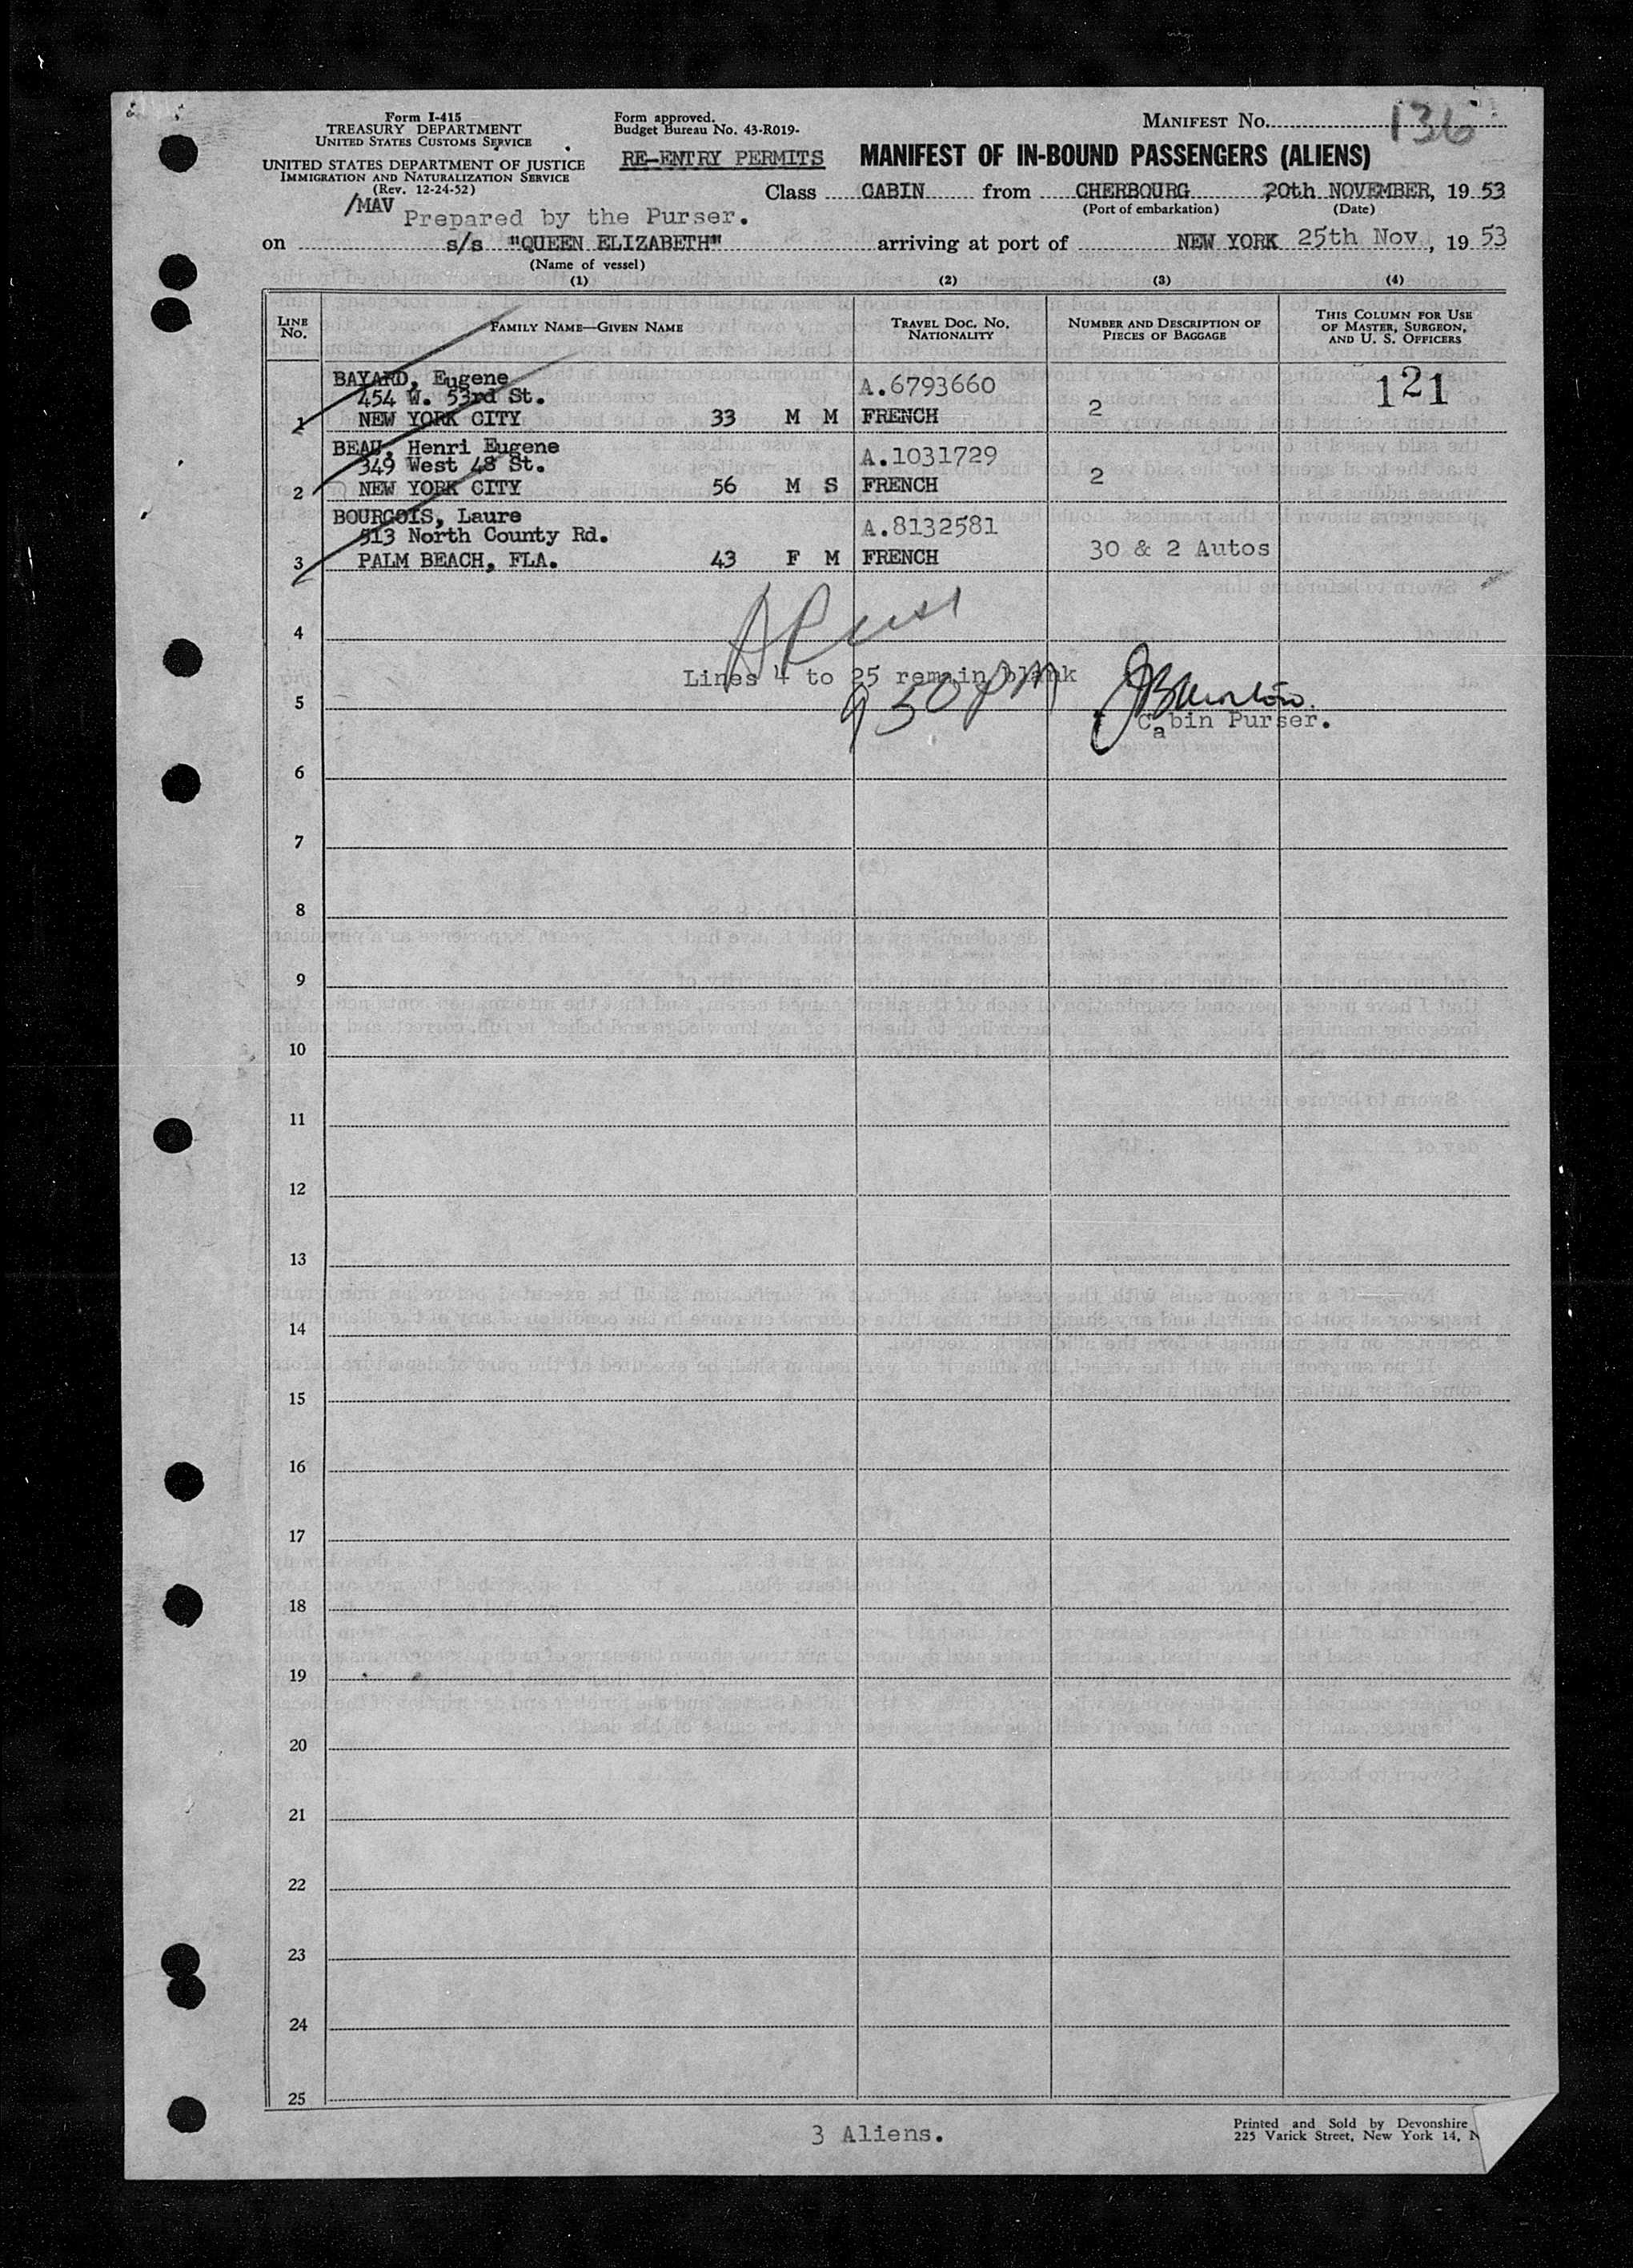 Form I-415
TREASURY DEPARTMENT
UNITED STATES CUSTOMS SERVICE
UNITED STATES DEPARTMENT OF JUSTICE
IMMIGRATION AND NATURALIZATION SERVICE
(Rev. 12-24-52)
Form approved.
Budget Bureau No. 43-R019-
MANIFEST No. 136
RE-ENTRY PERMITS MANIFEST OF IN-BOUND PASSENGERS (ALIENS)
Class CABIN from CHERBOURG 20th NOVEMBER, 19 53
(Port of embarkation) (Date)
/MAV Prepared by the Purser.
on s/s "QUEEN ELIZABETH" arriving at port of NEW YORK 25th Nov, 19 53
(Name of vessel)
(1) (2) (3) (4)
LINE No. FAMILY NAME—GIVEN NAME TRAVEL DOC. NO. NATIONALITY NUMBER AND DESCRIPTION OF PIECES OF BAGGAGE THIS COLUMN FOR USE OF MASTER, SURGEON, AND U. S. OFFICERS
BAYARD, Eugene A.6793660 121
454 W. 53rd St.
1 NEW YORK CITY 33 M M FRENCH 2
BEAU, Henri Eugene A.1031729
349 West 48 St.
2 NEW YORK CITY 56 M S FRENCH 2
BOURGOIS, Laure A.8132581
513 North County Rd.
3 PALM BEACH, FLA. 43 F M FRENCH 30 & 2 Autos
4
Lines 4 to 25 remain blank
950 PM
5
Cabin Purser.
6
7
8
9
10
11
12
13
14
15
16
17
18
19
20
21
22
23
24
25
3 Aliens.
Printed and Sold by Devonshire
225 Varick Street, New York 14, N